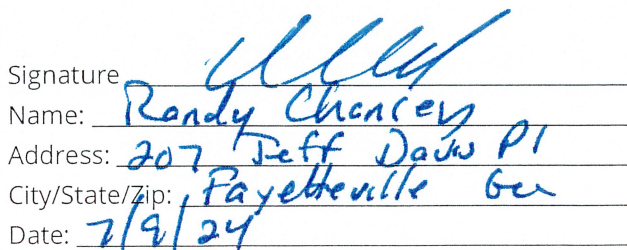 Signature
Name: Randy Chancey
Address: 207 Jeff Davis Pl
City/State/Zip: Fayetteville Ga
Date: 7/9/24